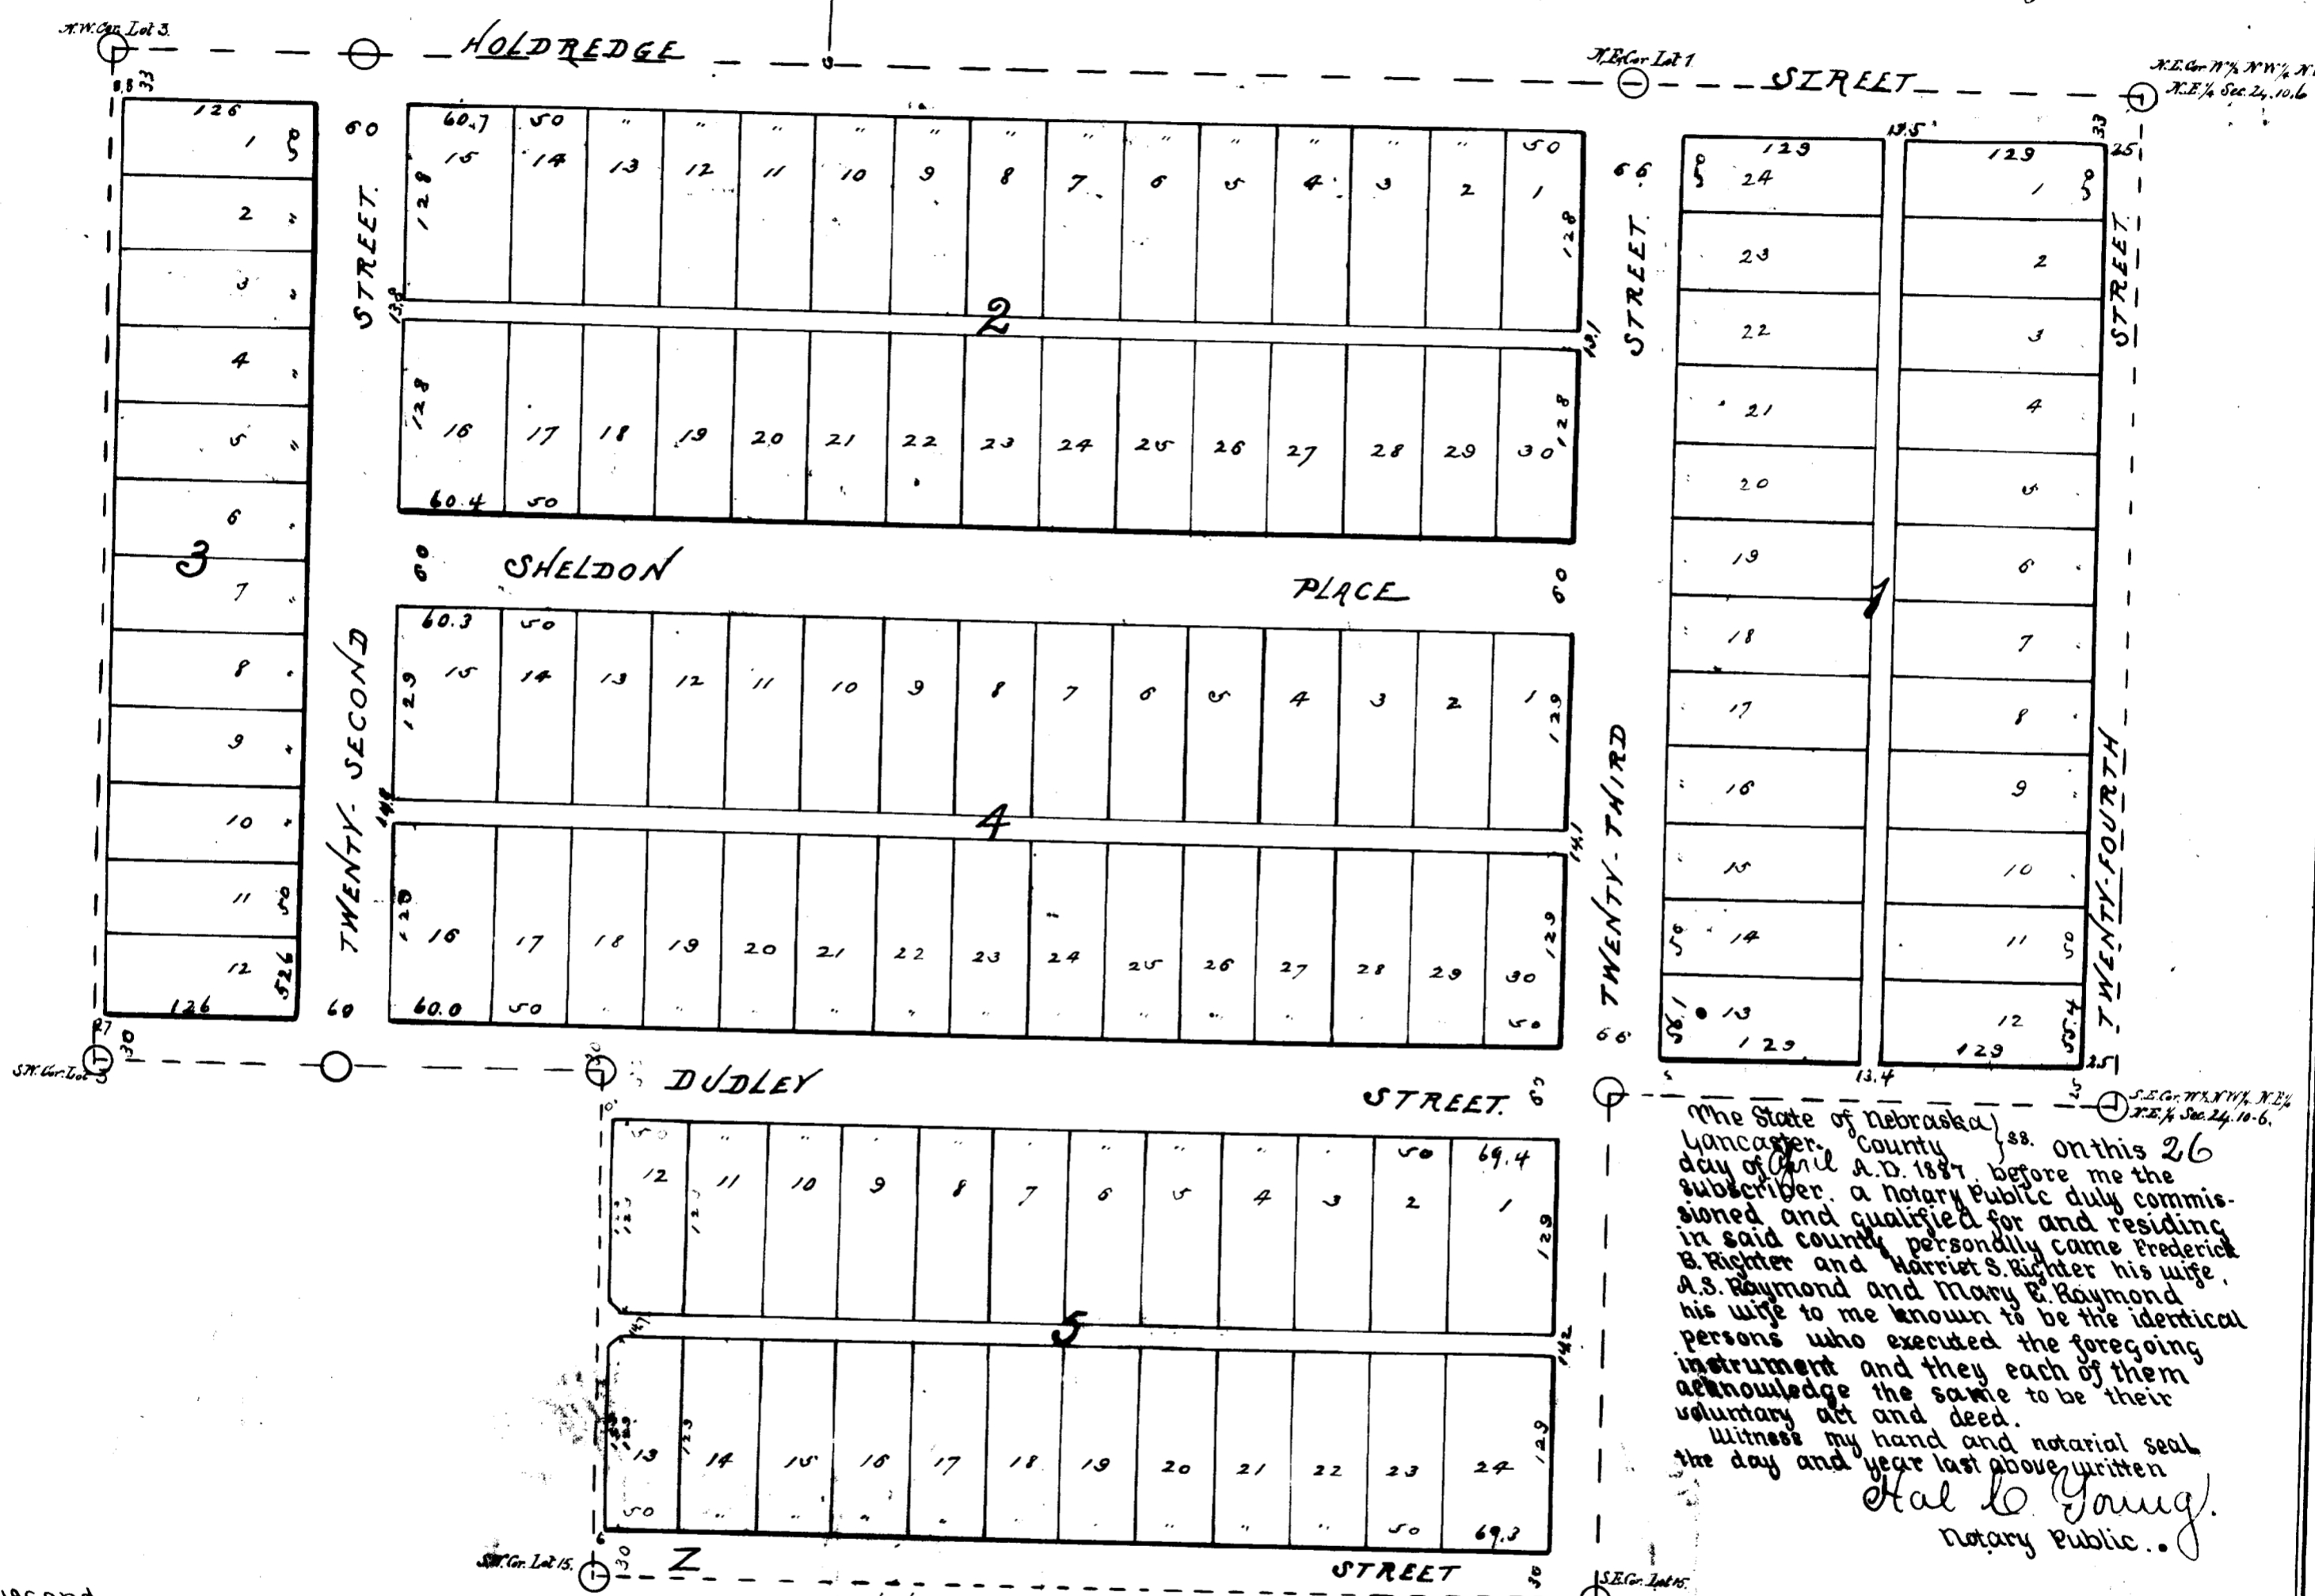 N.W. Cor. Lot 3.
HOLDREDGE STREET
N.E. Cor Lot 1
N.E. Cor W½ NW¼ N
N.E.¼ Sec. 24. 10. 6
33
126
1 50
2 "
3 "
4 "
5 "
6 "
3
7 "
8 "
9 "
10 "
11 50
12 52.6
126
27
30
S.W. Cor. Lot 3
60
TWENTY-SECOND STREET.
60
60.7 50 " " " " " " " " " " " " 50
15 14 13 12 11 10 9 8 7 6 5 4 3 2 1
128 128
13.8 2 13.1
128 128
16 17 18 19 20 21 22 23 24 25 26 27 28 29 30
60.4 50
60 SHELDON PLACE 60
60.3 50
15 14 13 12 11 10 9 8 7 6 5 4 3 2 1
129 129
4 14.1
129 129
16 17 18 19 20 21 22 23 24 25 26 27 28 29 30
60.0 50 " " " " " " " " " " " " 50
66
TWENTY-THIRD STREET.
66
13.5
33
25
129 129
50 24 1 50
23 2
22 3
21 4
20 5
19 6
1
18 7
17 8
16 9
15 10
50 14 11 50
56.1 13 12 55.4
129 129
13.4
25
TWENTY-FOURTH STREET
S.E. Cor. W½ NW¼ N.E¼
N.E.¼ Sec. 24. 10-6.
30
DUDLEY STREET. 60
50 " " " " " " " " " 50 69.4
12 11 10 9 8 7 6 5 4 3 2 1
129
5 14.2
129 129 129
13 14 15 16 17 18 19 20 21 22 23 24
50 " " " " " " " " " 50 69.3
S.W. Cor. Lot 15.
30 Z STREET 30
S.E. Cor. Lot 15.
The State of Nebraska } ss. on this 26
Lancaster County
day of April A.D. 1887, before me the
subscriber. a notary Public duly commis-
sioned and qualified for and residing
in said county personally came Frederick
B. Righter and Harriet S. Righter his wife,
A.S. Raymond and Mary E. Raymond
his wife to me known to be the identical
persons who executed the foregoing
instrument and they each of them
acknowledge the same to be their
voluntary act and deed.
Witness my hand and notarial seal
the day and year last above written
Hal C. Young.
Notary Public..